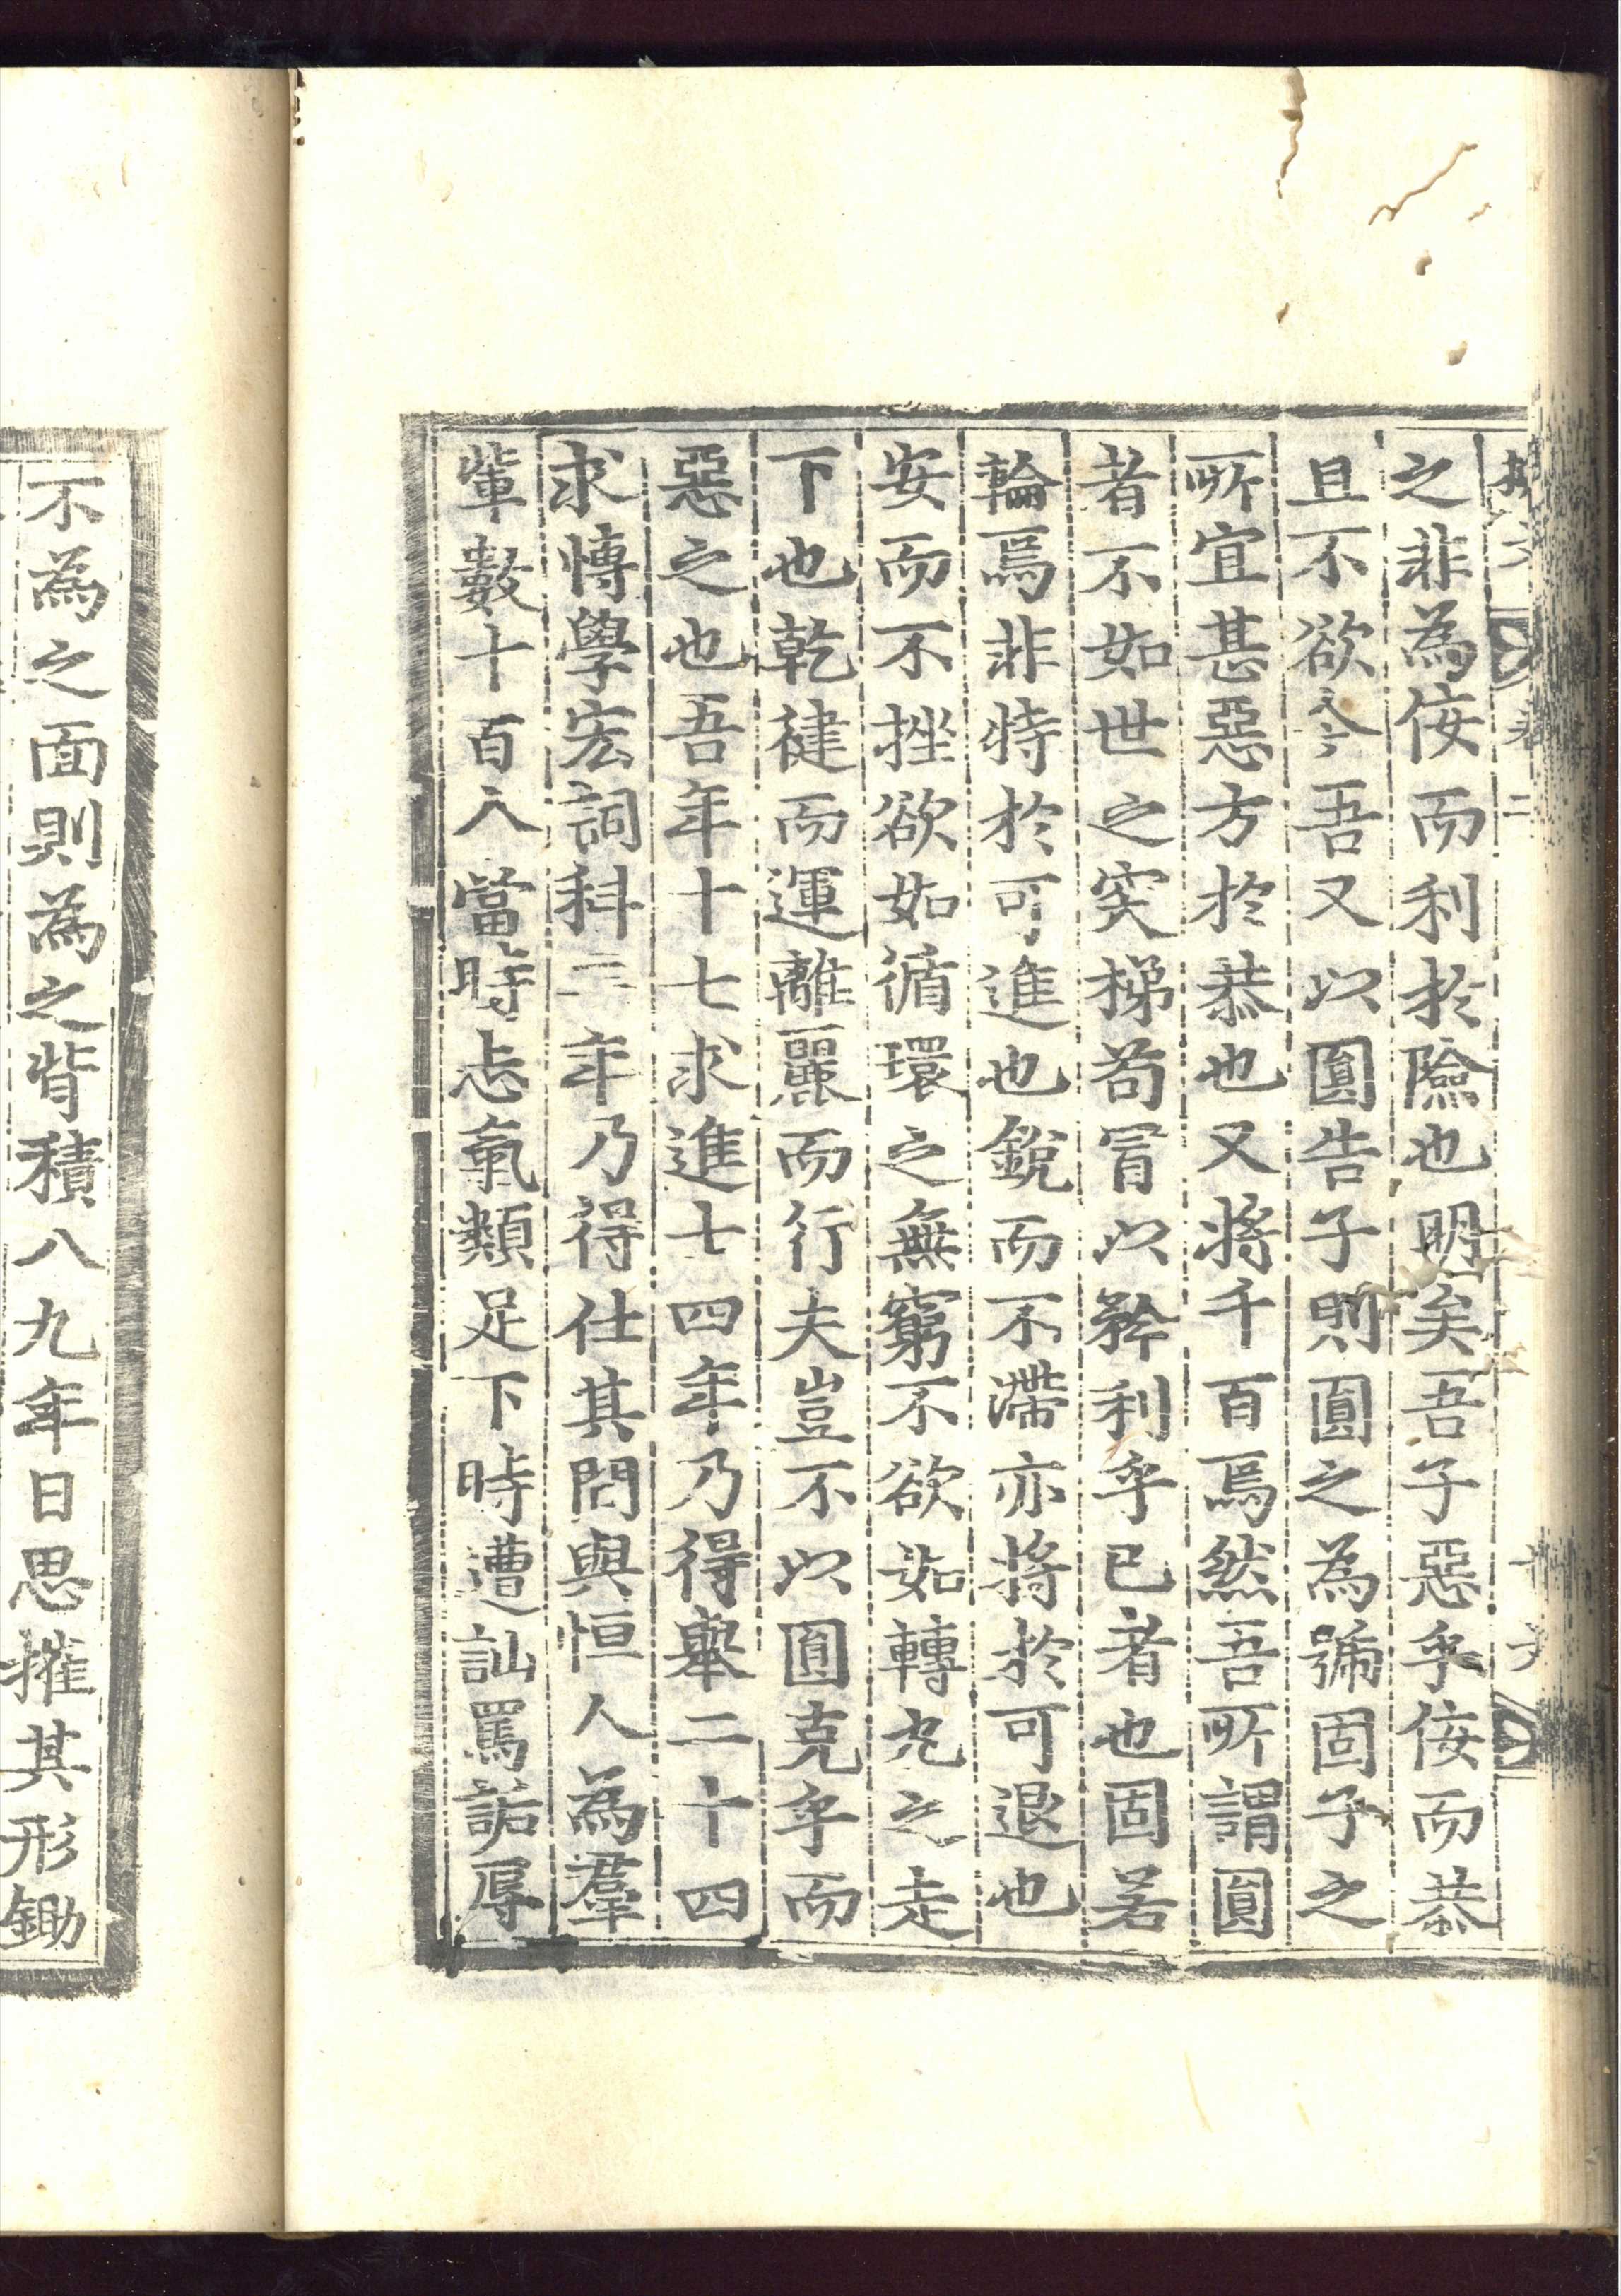 之非為佞而利於險也明矣吾子惡乎佞而恭
且不欲今吾又以圓告子則圓之為號固子之
所宜甚惡方於恭也又將千百焉然吾所謂圓
者不如世之突梯苟冒以矜利乎已者也固若
輪焉非特於可進也銳而不滯亦將於可退也
安而不挫欲如循環之無窮不欲如轉丸之走
下也乾健而運離麗而行夫豈不以圓克乎而
惡之也吾年十七求進士四年乃得舉二十四
求博學宏詞科二年乃得仕其間與恒人為羣
輩數十百人當時志氣類足下時遭訕罵詬辱
不為之面則為之背積八九年日思摧其形鋤